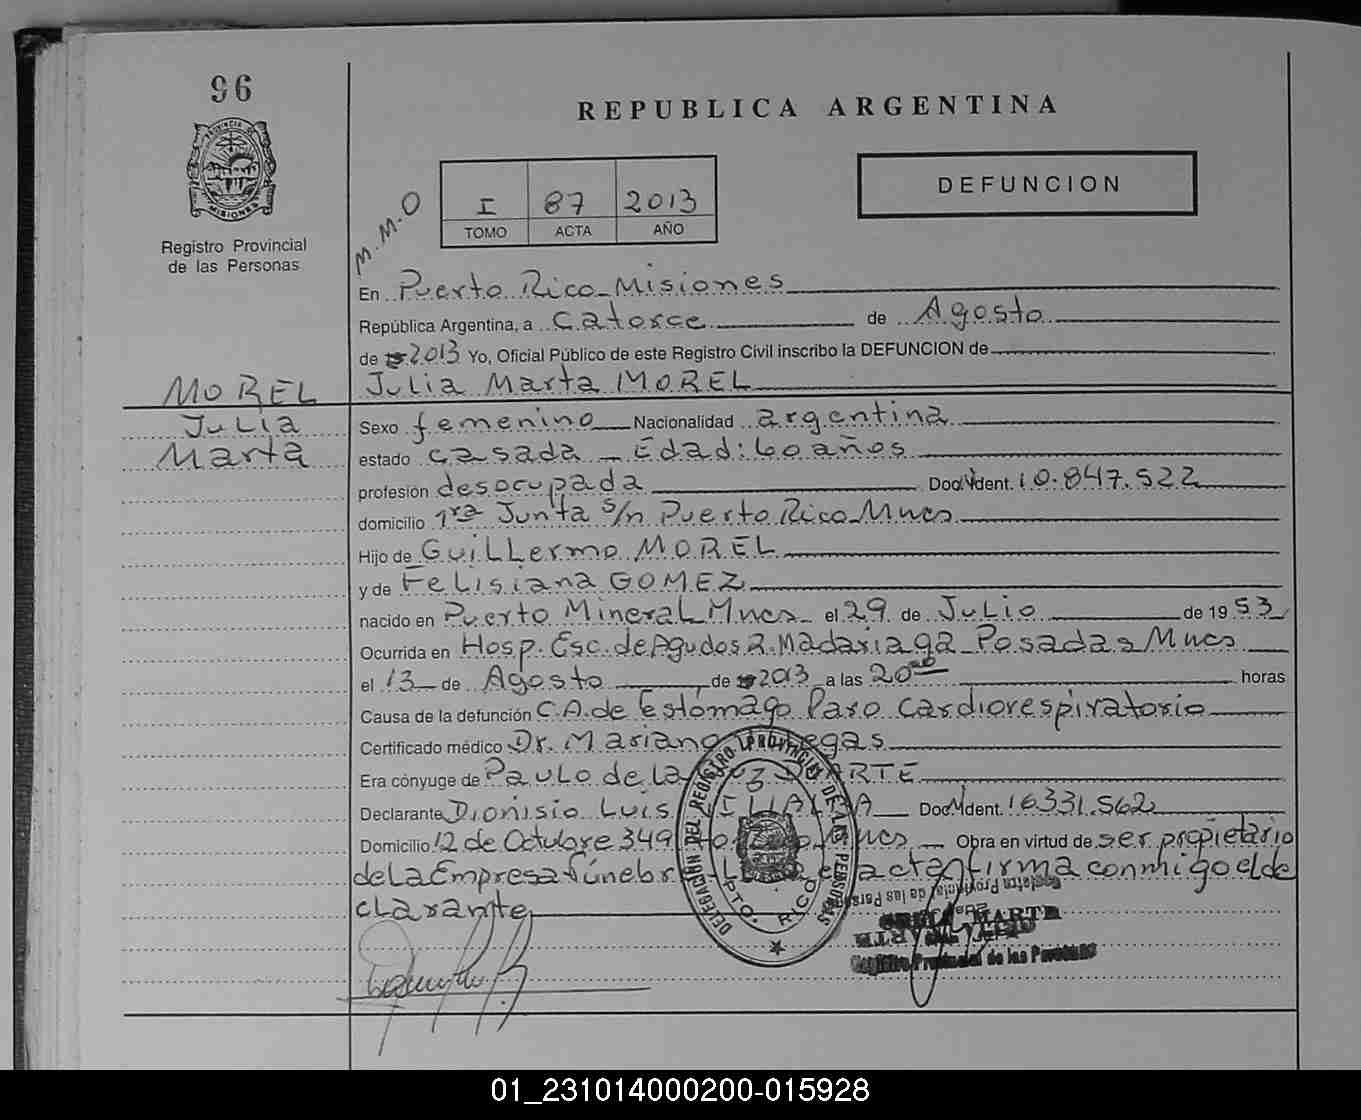 96
REPUBLICA ARGENTINA
PROVINCIA DE
MISIONES
Registro Provincial
de las Personas
M.M.O
I 87 2013
TOMO ACTA AÑO
DEFUNCION
En Puerto Rico Misiones
República Argentina, a catorce de Agosto
de 2013 Yo, Oficial Público de este Registro Civil inscribo la DEFUNCION de
MOREL
Julia
Marta
Julia Marta MOREL
Sexo femenino Nacionalidad argentina
estado casada - Edad: 60 años
profesión desocupada Doc. Ident. 10.847.522
domicilio 1ra Junta s/n Puerto Rico Mnes
Hijo de Guillermo MOREL
y de Felisiana GOMEZ
nacido en Puerto Mineral Mnes el 29 de Julio de 1953
Ocurrida en Hosp. Esc. de Agudos R. Madariaga Posadas Mnes
el 13 de Agosto de 2013 a las 20 horas
Causa de la defunción C.A. de Estómago Paro cardiorespiratorio
Certificado médico Dr. Mariano
Era cónyuge de Paulo de la DUARTE
Declarante Dionisio Luis Doc. Ident. 16331.562
Domicilio 12 de Octubre 349 Mnes - Obra en virtud de ser propietario
de la Empresa Fúnebre acta firma conmigo el de
clarante
DELEGACION DEL REGISTRO PROVINCIAL DE LAS PERSONAS
PTO. RICO
Registro Provincial de las Personas
MARTA
Registro Provincial de las Personas
01_231014000200-015928